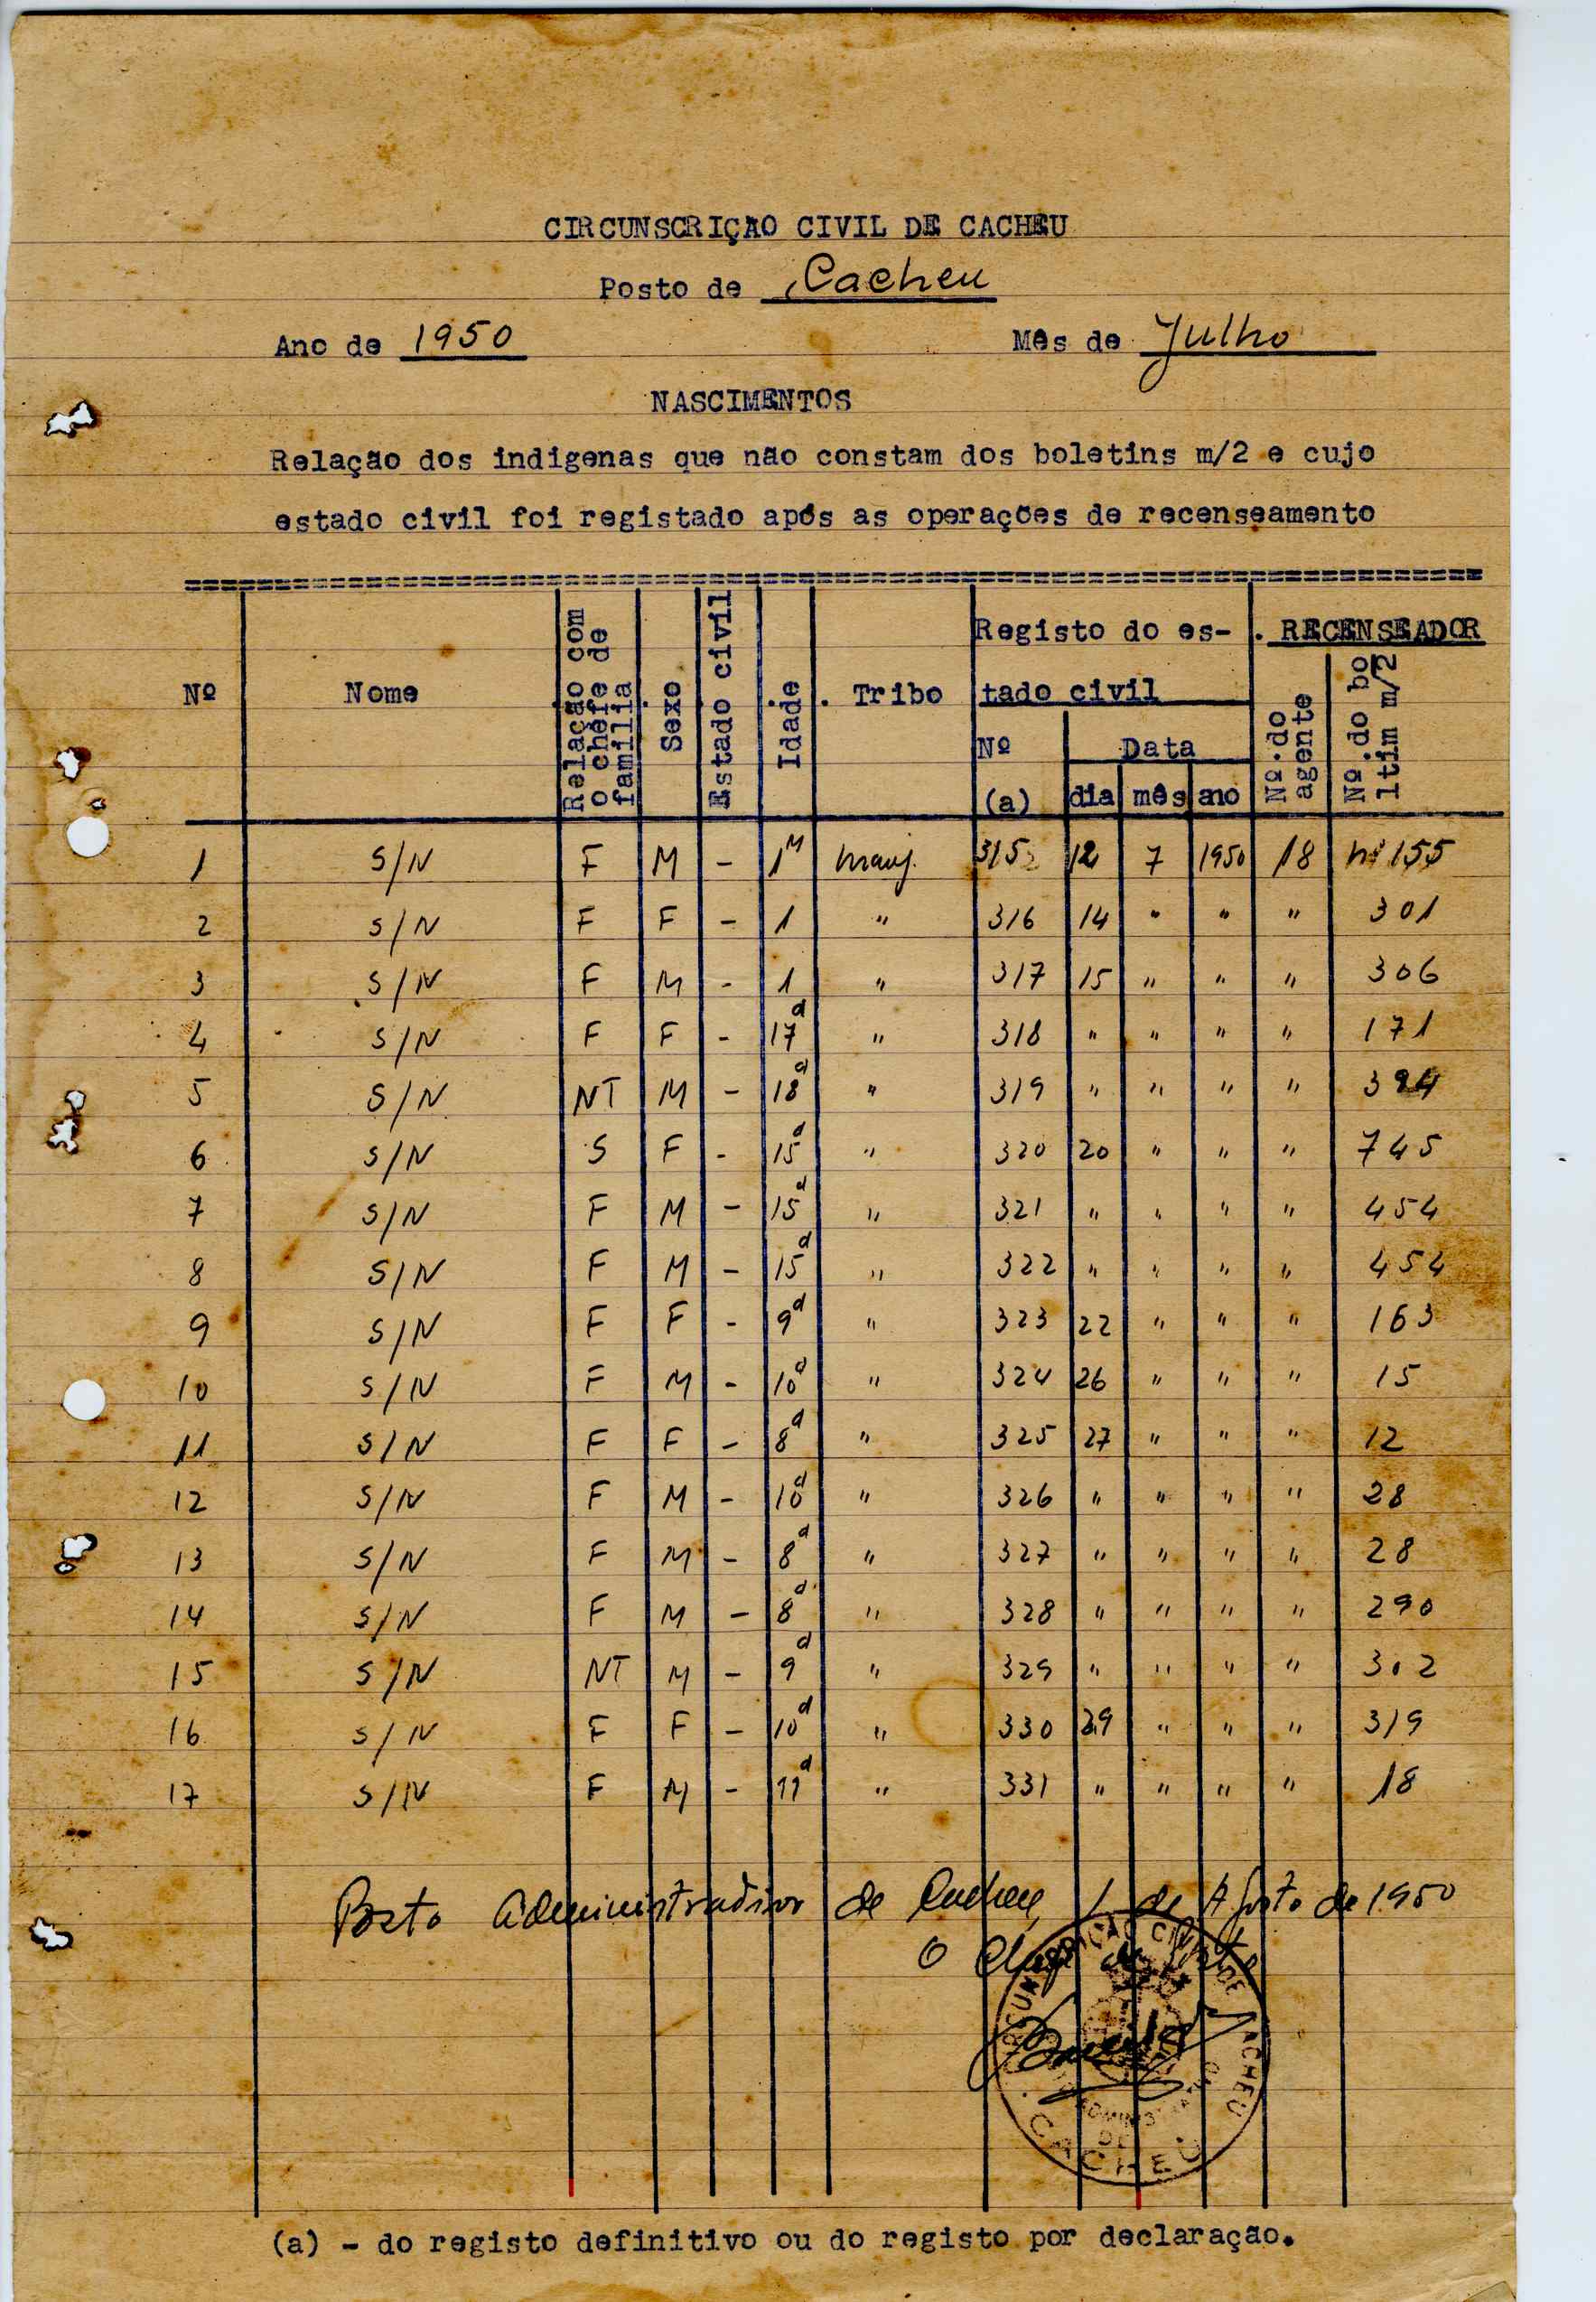 CIRCUNSCRIÇÃO CIVIL DE CACHEU
Posto de Cacheu
Ano de 1950 Mês de Julho
NASCIMENTOS
Relação dos indigenas que não constam dos boletins m/2 e cujo
estado civil foi registado após as operações de recenseamento
Nº Nome Relação com o chefe de familia Sexo Estado civil Idade Tribo Registo do es-tado civil Nº (a) Data dia mês ano RECENSEADOR Nº.do agente Nº.do bo ltim m/2
1 S/N F M - 1M Manj. 315 12 7 1950 18 nº 155
2 S/N F F - 1 " 316 14 " " " 301
3 S/N F M - 1 " 317 15 " " " 306
4 S/N F F - 17d " 318 " " " " 171
5 S/N NT M - 18d " 319 " " " "
6 S/N S F - 15d " 320 20 " " " 745
7 S/N F M - 15d " 321 " " " " 454
8 S/N F M - 15d " 322 " " " " 454
9 S/N F F - 9d " 323 22 " " " 163
10 S/N F M - 10d " 324 26 " " " 15
11 S/N F F - 8d " 325 27 " " " 12
12 S/N F M - 10d " 326 " " " " 28
13 S/N F M - 8d " 327 " " " " 28
14 S/N F M - 8d " 328 " " " " 290
15 S/N NT M - 9d " 329 " " " " 302
16 S/N F F - 10d " 330 29 " " " 319
17 S/N F M - 11d " 331 " " " " 18
Posto Administrativo de Cacheu, 1 de Agosto de 1950
O Chefe de Posto
CIRCUNSCRIÇÃO CIVIL DE CACHEU
CACHEU
(a) - do registo definitivo ou do registo por declaração.